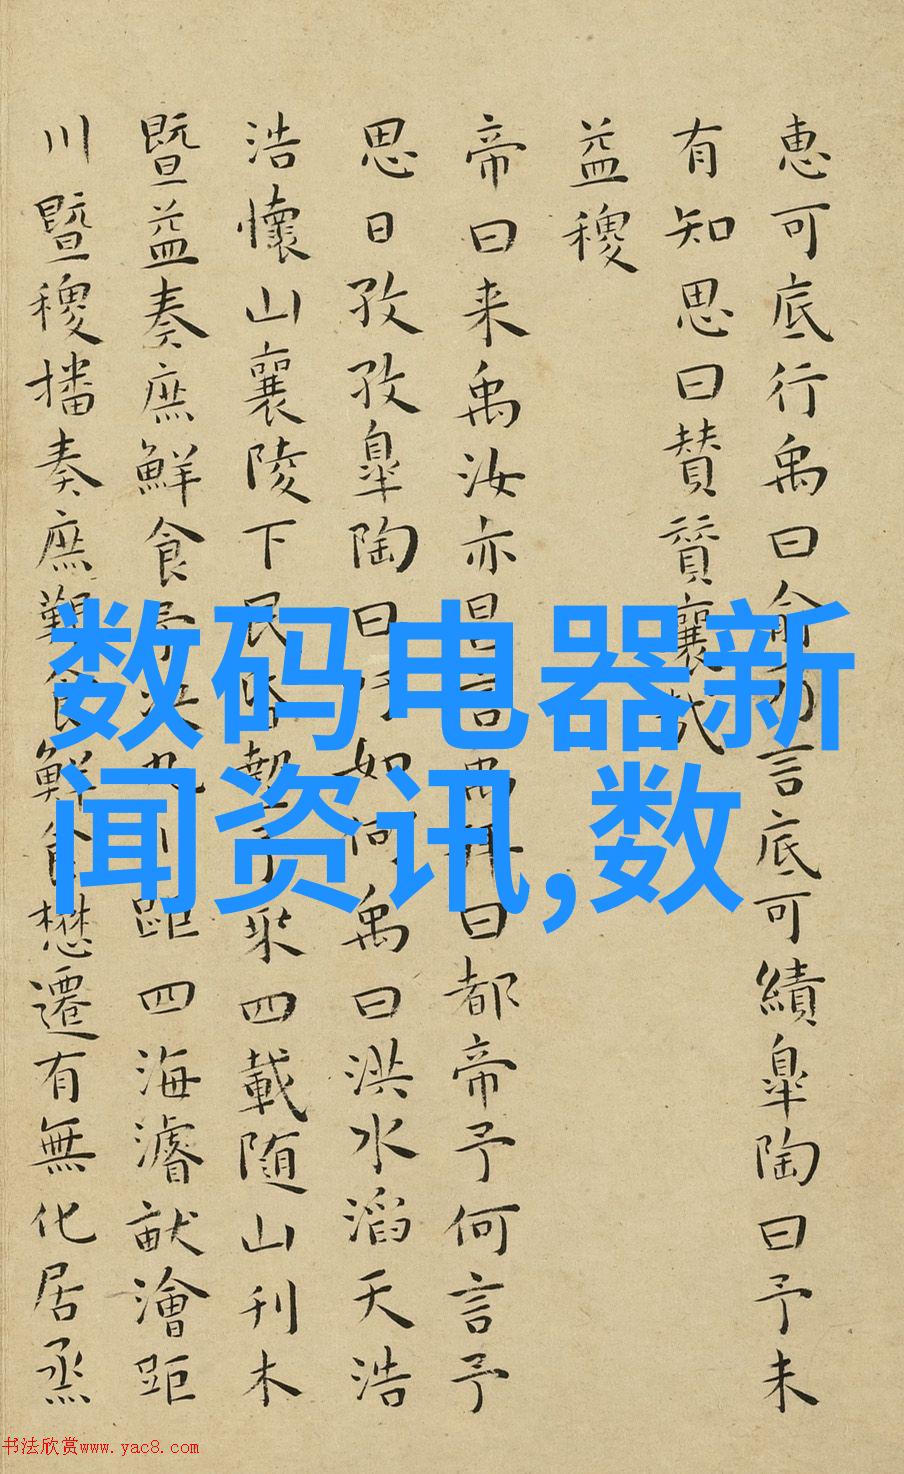 惠可底行禹曰俞乃言底可績皐陶曰予未
有知思曰贊贊襄哉
益稷
帝曰来禹汝亦昌言禹拜曰都帝予何言予
思日孜孜皐陶曰吁如何禹曰洪水滔天浩
浩懷山襄陵下民昏墊予乘四載随山刊木
暨益奏庶鮮食予决九川距四海濬畎澮距
川暨稷播奏庶艱食鮮食懋遷有無化居烝
数码电器新
闻资讯,数
书法欣赏www.yac8.com